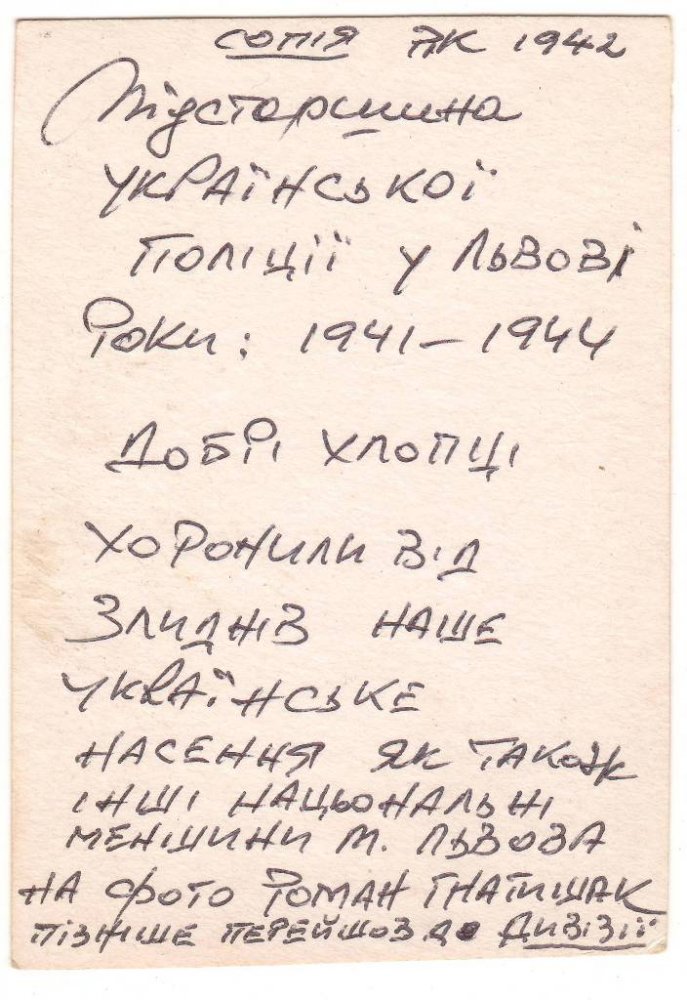 СОПІЯ ЯК 1942
Підстаршина
УКРАЇНСЬКОЇ
ПОЛІЦІЇ У ЛЬВОВІ
РОКИ: 1941-1944
ДОБРІ ХЛОПЦІ
ХОРОНИЛИ ВІД
ЗЛИДНІВ НАШЕ
УКРАЇНСЬКЕ
НАСЕННЯ ЯК ТАКОЖ
ІНШІ НАЦЬОНАЛЬНІ
МЕНШИНИ М. ЛЬВОВА
НА ФОТО РОМАН ГНАТИШАК
ПІЗНІШЕ ПЕРЕЙШОВ ДО ДИВІЗІЇ